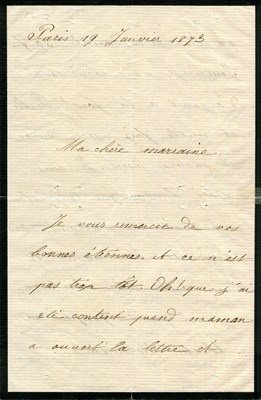 Paris 19 Janvier 1873
Ma chère marraine.
Je vous remercie de vos
bonnes étrennes, et ce n'est
pas trop tôt. Oh! que j'ai
été content quand maman
a ouvert la lettre et